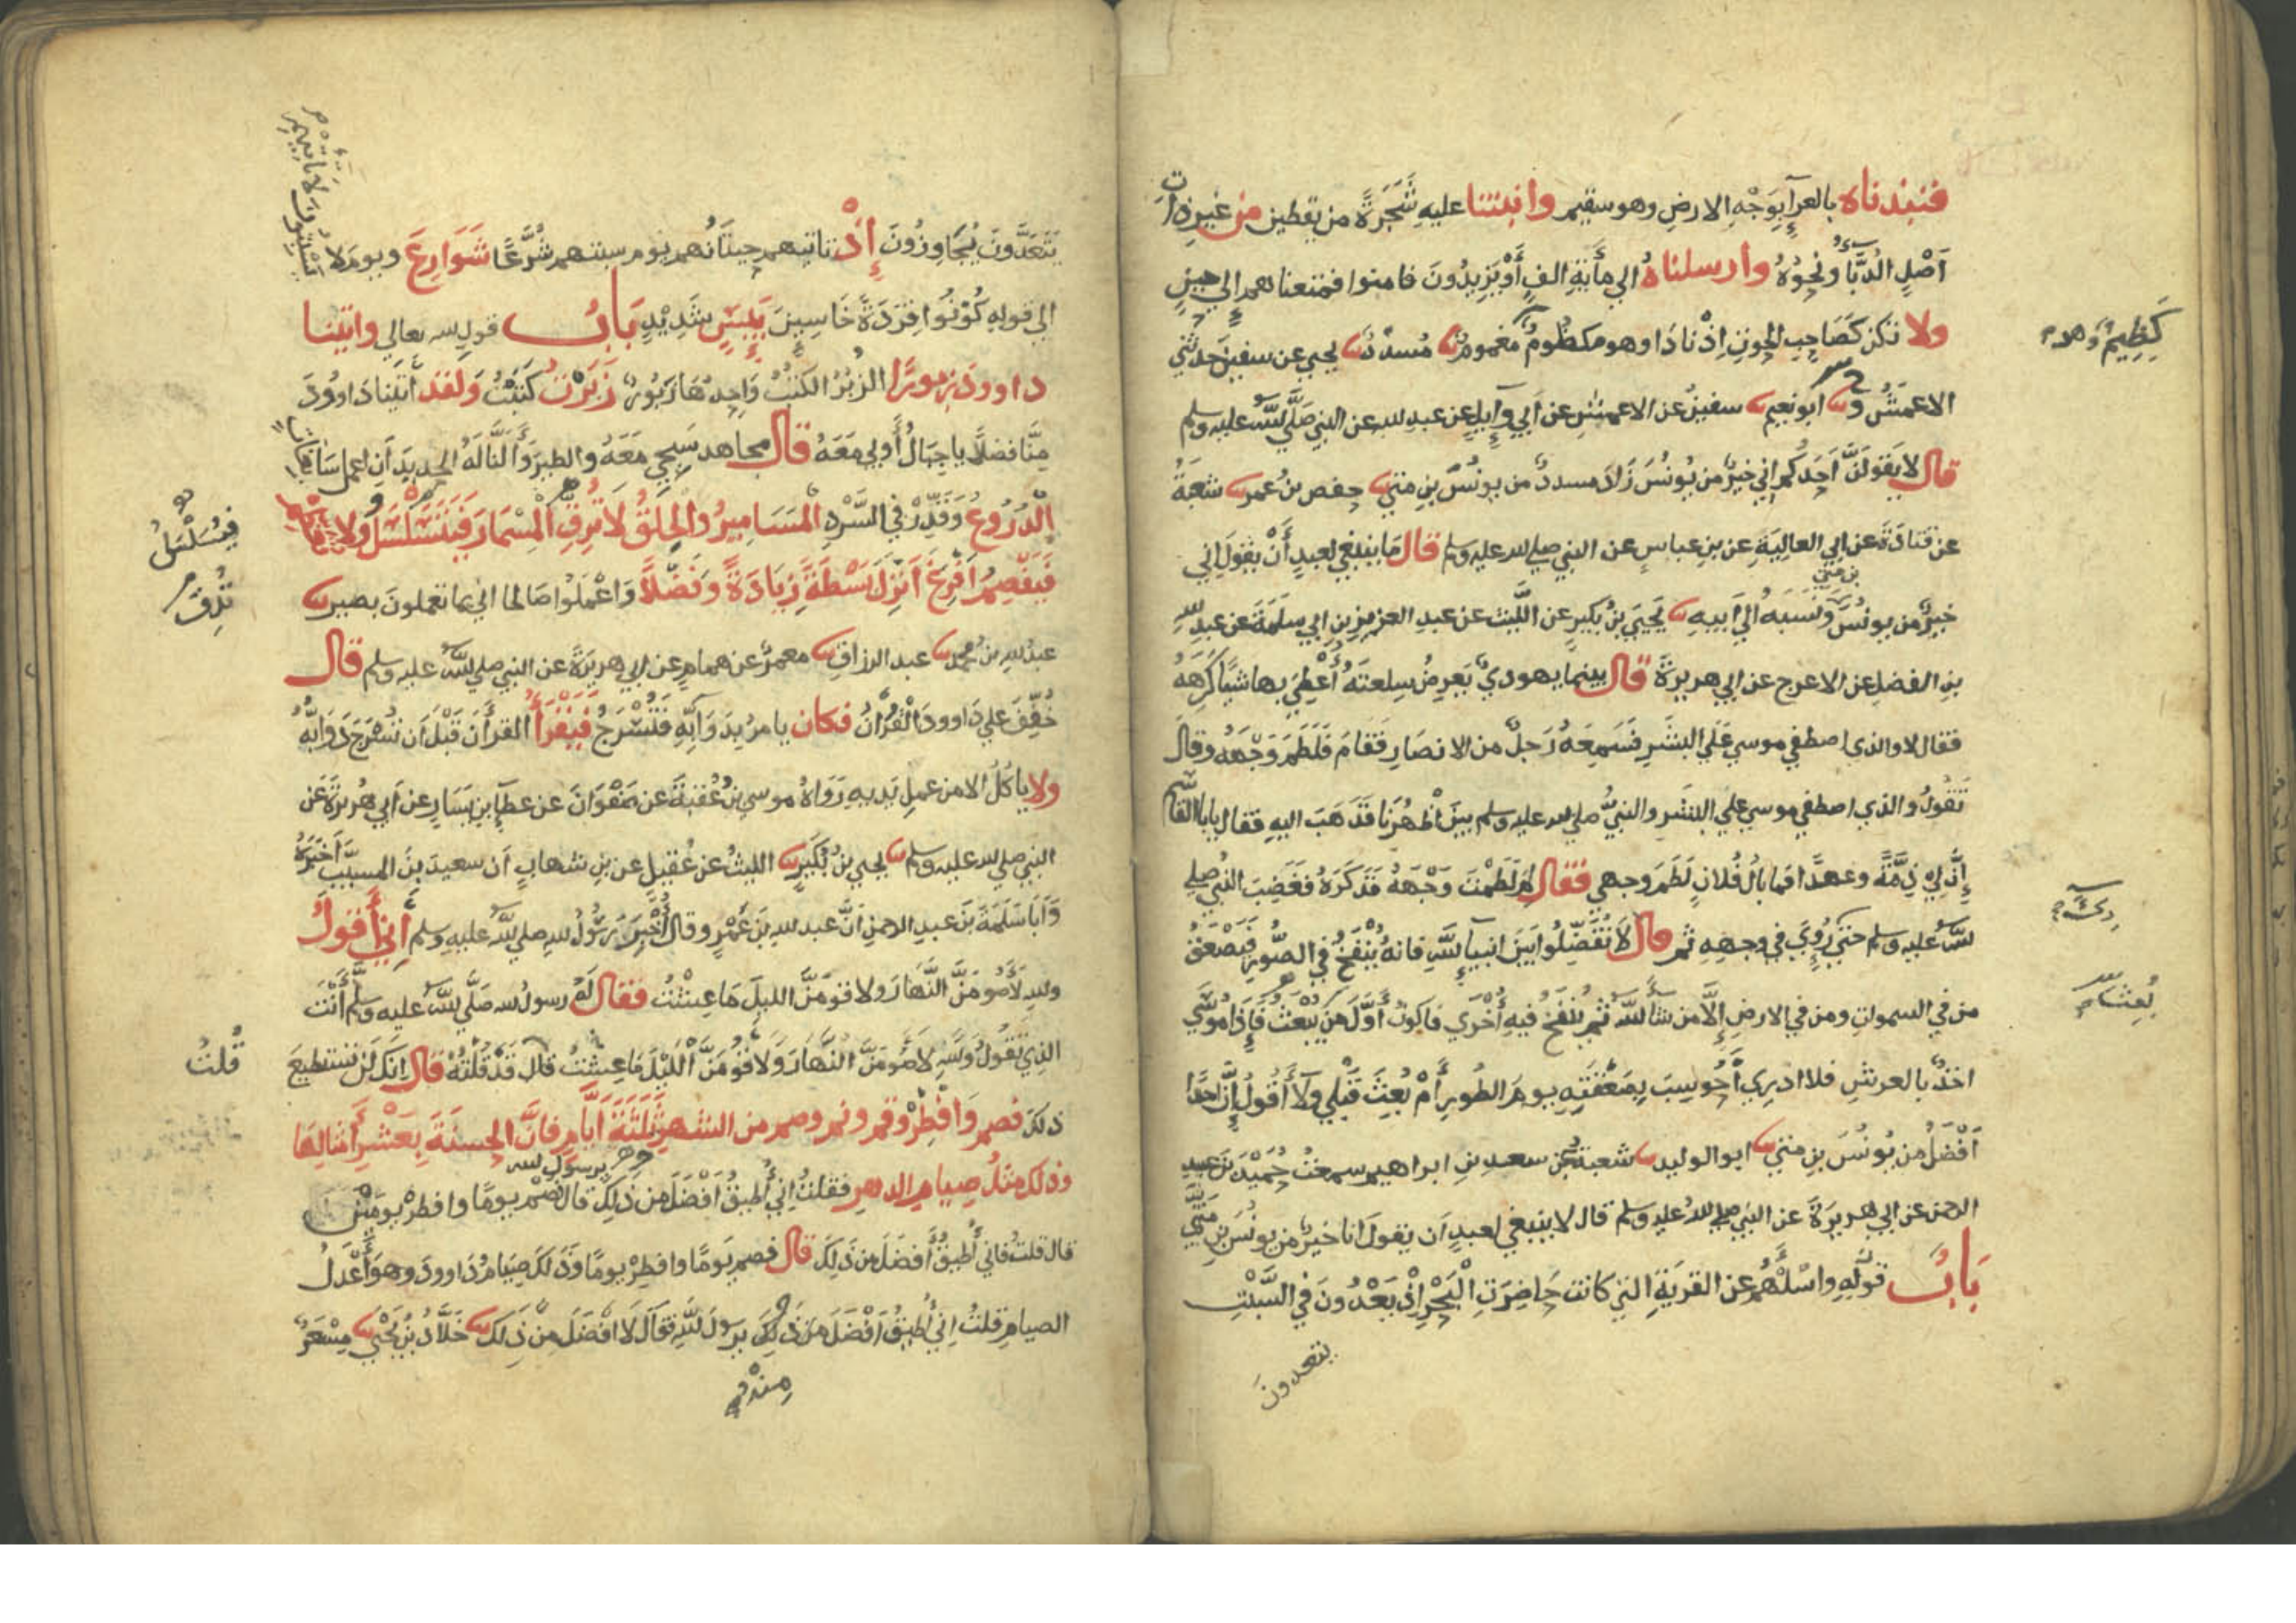 فنبذناه بالعرآءِ بِوَجْهِ الارضِ وهو سقيم وانبتنا عليهِ شَجَرَةً من يقطين من غيرِ ذاتِ
اَصْلٍ الدُّبَّآءُ ونحوُهُ وأرسلناهُ الي مأيَةِ الفٍ أَوْ يَزِيدُونَ فامنوا فمتعناهم إلي حينٍ
ولا تكن كَصَاحِبِ الحوتِ اِذْ نادَا وهو مكظومٌ مغمومٌ مُسدّدٌ يحيي عن سفين حدثني
الاعمَشُ وَ ابو نعيم سفينُ عن الاعمشِ عن اَبي وآيِلٍ عن عبدِ لله عن النبي صَلَّي لله عليه وسلم
قال لا يقولَنَّ اَحَدُكم اني خيرٌ من يُونُسَ زَادَ مسددٌ من يونُسَ بنِ متي حفص بنُ عمر شعبَةُ
عن قتادَةَ عن ابي العالِيَةِ عن بنِ عباسٍ عن النبي صلي لله عليه وسلم قال مَا ينبغي لعبدٍ أَنْ يقولَ اني
خيرٌ من يونُسَ بن متي وَنَسَبَهُ الي اَبيهِ يَحيَي بنُ بُكيرٍ عن اللَّيث عن عبدِ العزيزِ بنِ ابي سلَمَةَ عن عبدِ لله
بنِ الفضلِ عن الاعرج عن ابي هريرَةَ قال بينما يهوديٌّ يَعرِضُ سِلعتَهُ أُعْطِيَ بها شيًا كَرِهَهُ
فقال لا والذي اصطفي موسي عَلَي البشَرِ فسَمِعَهُ رَجلٌ من الانصَارِ فقامَ فلَطَمَ وَجْهَهُ وقال
تَقُولُ والذي اصطفي موسي علي البشَرِ والنبيُّ صلي لله عليه وسلم بينَ أظهُرِنا فَذَهَبَ اليهِ فقال يابا القاسم
إِنَّ لي ذِمَّةً وعهدًا فما بالُ فُلانٍ لَطَمَ وجهي فقال لم لَطَمْتَ وَجْهَهُ فَذَكَرَهُ فغَضِبَ النبيُّ صلي
للهُ عليه وسلم حتي رُؤِيَ في وجهِهِ ثم قال لَا تُفَضِّلُوا بينَ انبيآءِ للهِ فانهُ يُنْفَخُ في الصُّورِ فَيَصْعَقُ
من في السموات ومن في الارضِ إلَّا من شآءَ لله ثم يُنْفَخُ فيهِ أُخْرَي فاكونُ أَوَّلَ من بُعِثَ فَإِذَا مُوسَي
اخذٌ بالعرشِ فلا ادرِي أَحُوسِبَ بِصَعْقَتِهِ يومَ الطُّورِ أَمْ بُعِثَ قَبْلي ولا أَقُولُ إنَّ احَدًا
اَفْضَلُ من يُونُسَ بنِ متي ابو الوليد شعبةُ عن سعدِ بنِ ابراهيم سمعتُ حُمَيْدَ بنَ عبدِ
الرحمن عن ابي هريرَةَ عن النبي صلي للهُ عليه وسلم قال لا ينبغي لعبدٍ اَن يقولَ انا خيرٌ من يونُسَ بن متي
بَابُ قولِهِ واسْئلْهُم عن القريَةِ التي كانت حَاضِرَتِ البَحْرِ اِذْ يَعْدُونَ في السَّبْتِ
يتعدونَ
كَظِيمٌ وهو
ذلك
بُعِثَ
يَتَعَدَّونَ يُجَاوِزُونَ إِذْ تاتيهم حِيتَانُهم يوم سبتهم شُرَّعًا شَوَارِعَ ويوم لا
يَسْبِتُونَ لا تاتيهم
الي قولهِ كُوْنُوا قِرَدَةً خَاسِيِنَ بَئِيسٍ شَدِيْدٍ بَابُ قولِ لله تعالي واتينا
داوودَ زبورًا الزُّبُرُ الكُتُبُ وَاحِدُهَا زَبُورٌ زَبَرْتُ كَتَبْتُ وَلقد أتينا دَاوُودَ
مِنَّا فضلًا يا جِبَالُ أَوِبي مَعَهُ قال مجاهد سَبِّحي مَعَهُ والطيرَ وَأَلَنَّا لَهُ الحديدَ اَنِ اعمل سَابغات
الدُّرُوعَ وَقَدِّرْ في السَّرْدِ المسَامِيرُ والحِلَقُ لَا تُرِقِّ الْمِسْمَارَ فَيَتَسَلْسَلَ ولا
فَيَفْصِمُ اَفْرِغْ اَنْزِلْ بَسْطَةً زِيَادَةً وَفَضْلًا وَاعْمَلُوا صَالحا اني بما تعملونَ بصير
عبدُ لله بن محمد عبد الرزاق معمرٌ عن همامٍ عن ابي هريرَةَ عن النبي صلي لله عليه وسلم قال
خُفِّفَ علي دَاوودَ القُرْآنُ فكان يامرُ بِدَوَآبِّهِ فَتُسْرَجُ فَيَقْرَأُ القرأن قَبْلَ اَن تُسْرَجَ دَوَابُّهُ
ولا ياكُلُ الا من عملِ يَدِيهِ رَوَاهُ موسي بنُ عُقبَةَ عن صَفْوَانَ عن عطآءِ بنِ يَسَارٍ عن اَبي هُريرَةَ عن
النبي صلي لله عليه وسلم يحيي بنُ بُكَيرٍ الليثُ عن عُقيلٍ عن بنِ شهابٍ اَن سعيدَ بنَ المسيبِ أَخبَرَهُ
وَاَبَا سَلَمَةَ بنَ عبدِ الرحمنِ اَنَّ عبد لله بنَ عَمْرٍو قال أُخْبِرَ رَسُولُ لله صلي لله عليه وسلم أَنِّي أَقُولُ
ولله لَأَصُومَنَّ النَّهَارَ ولاقومَنَّ الليلَ مَا عِشْتُ فقال لَهُ رسولُ لله صَلَّي لله عليه وسلم أَنْتَ
الذِي تَقُولُ وَلله لأصُومَنَّ النَّهَارَ وَلاقُومَنَّ اللَّيْلَ مَا عِشْتُ قال قَدْ قُلْتُهُ قال انكَ لَن تستطيعَ
ذلكَ فصم وَافْطِرْ وقم ونم وصم من الشهرِ ثَلثَةَ اَيَّامٍ فانَّ الحسنَةَ بِعَشْرِ أَمْثَالِهَا
وذلك مثلُ صِيَامِ الدهرِ فقلتُ اِنِّي أُطِيقُ اَفْضَلَ من ذَلِكَ يرسُولَ لله قال فصُم يومًا وافطرْ يومَيْنِ
قال قلتُ فاني أُطيقُ أَفضَلَ من ذَلِكَ قال فصم يَومًا وافطِرْ يومًا وَذَلكَ صِيَامُ دَاوودَ وهو أَعْدَلُ
الصيامِ قلتُ اِنِّي أُطيقُ أَفْضَلَ مِن ذلك يرَسولَ للهِ فقال لَا اَفْضَلَ مِن ذَلِكَ خَلَّادُ بنُ يَحْيَي مِسْعَرٌ
فيُسَلْسَلُ
تُدِقَّ
قُلتُ
مِنه